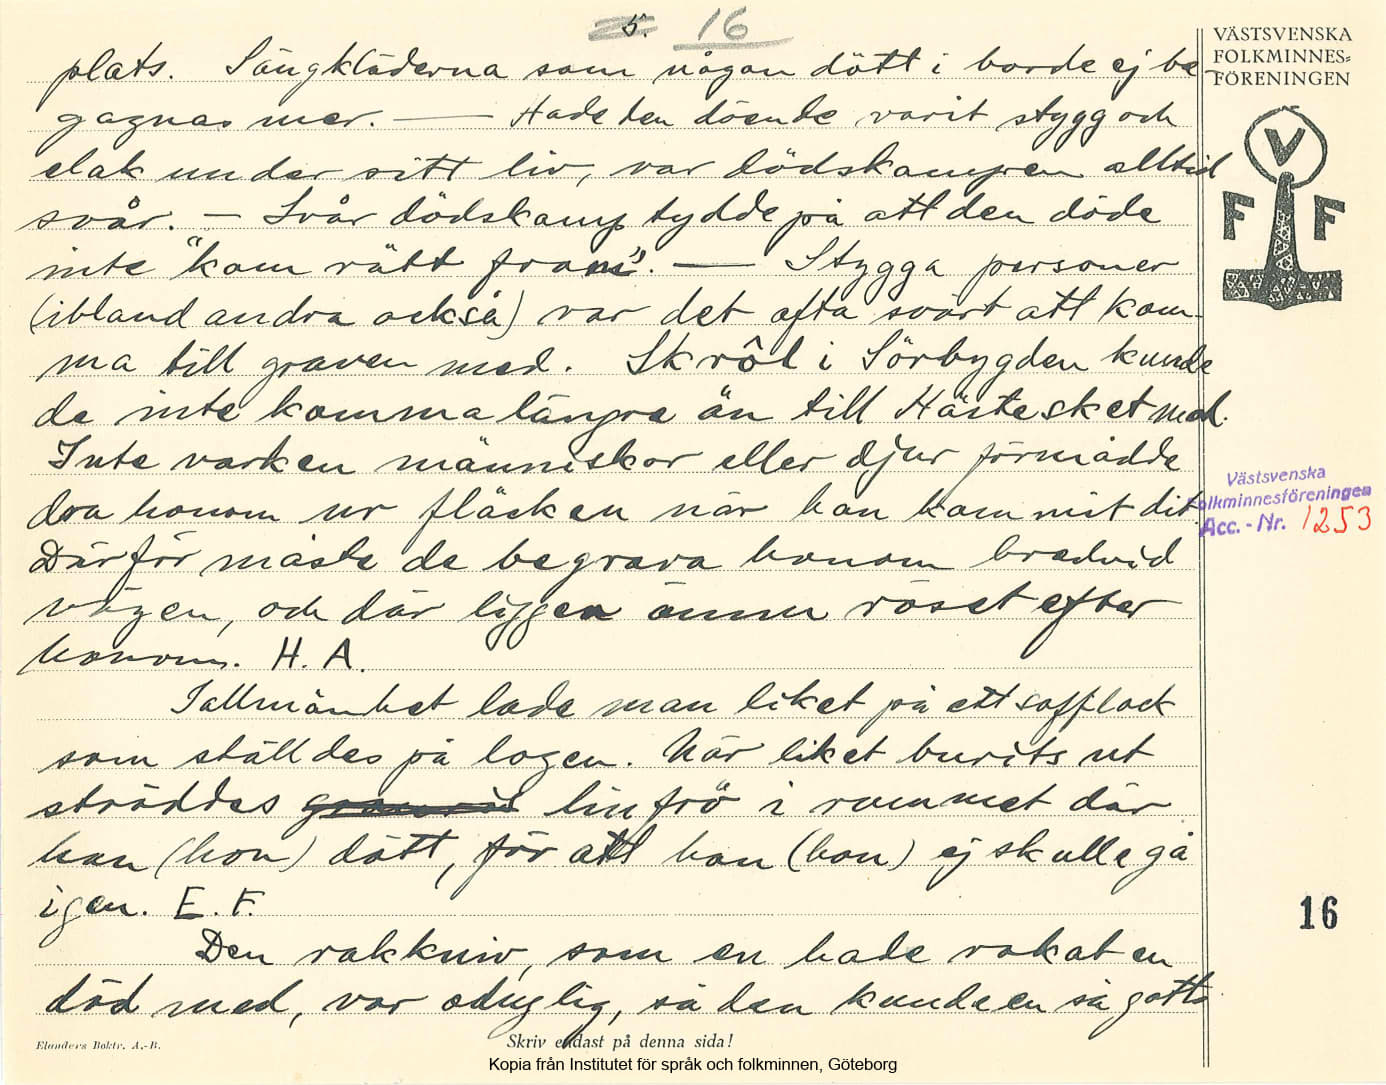 5. 16
VÄSTSVENSKA
FOLKMINNES=
FÖRENINGEN
V
F F
plats. Sängkläderna som någon dött i borde ej be-
gagnas mer. — Hade den döende varit stygg och
elak under sitt liv, var dödskampen alltid
svår. — Svår dödskamp tydde på att den döde
inte "kom rätt fram". — Stygga personer
(ibland andra också) var det ofta svårt att kom-
ma till graven med. Skrôl i Sörbygden kunde
de inte komma längre än till Hästesket med.
Inte varken människor eller djur förmådde
dra honom ur fläcken när han kommit dit.
Därför måste de begrava honom bredvid
vägen, och där ligger ännu röset efter
honom. H. A.
I allmänhet lade man liket på ett sofflock
som ställdes på logen. När liket burits ut
ströddes linfrö i rummet där
han (hon) dött, för att han (hon) ej skulle gå
igen. E. F.
Den rakkniv, som en hade rakat en
död med, var oduglig, så den kunde en så gott
Västsvenska
Folkminnesföreningen
Acc. - Nr. 1253
16
Elanders Boktr. A.-B.
Skriv endast på denna sida!
Kopia från Institutet för språk och folkminnen, Göteborg